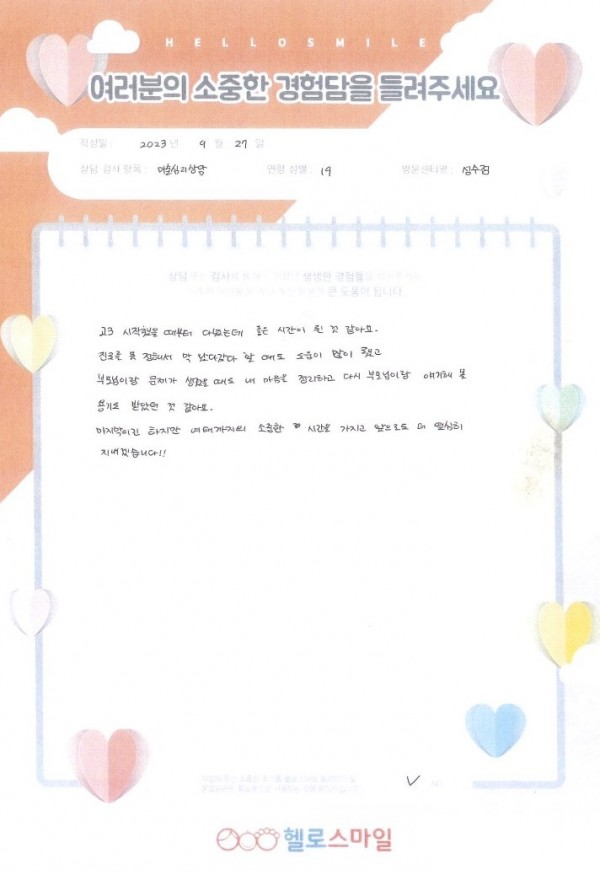 HELLOSMILE
여러분의 소중한 경험담을 들려주세요
작성일 : 2023 년 9 월 27 일
상담 검사 항목 : 미술심리상담 연령 성별 : 19 방문센터명 :
상담 생생한 경험들을
큰 도움이 됩니다
고3 시작했을 때부터 다녔는데 좋은 시간이 된 것 같아요.
진로를 못 정해서 막 왔다갔다 할 때도 도움이 많이 됐고
부모님이랑 문제가 생겼을 때도 내 마음을 정리하고 다시 부모님이랑 얘기해 볼
용기도 받았던 것 같아요.
마지막이긴 하지만 여태까지의 소중한 시간을 가지고 앞으로도 더 열심히
지내겠습니다!!
헬로스마일